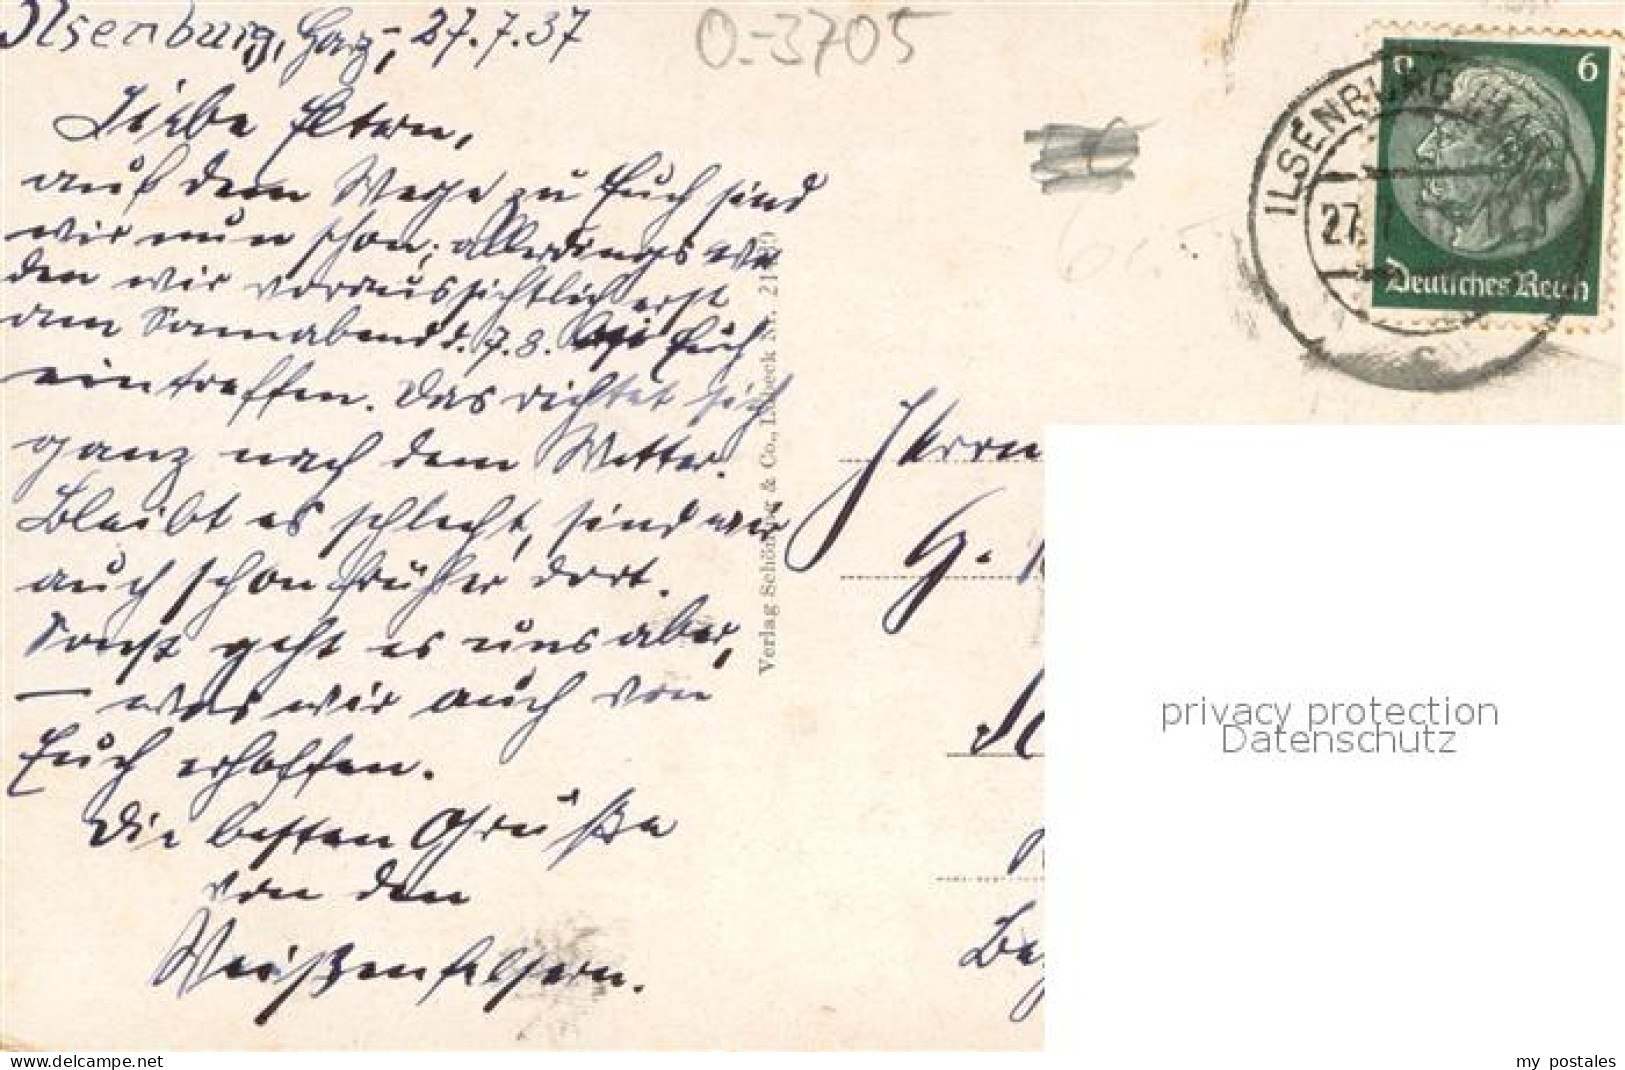 Ilsenburg, Harz, 27.7.37
O-3705
Liebe Eltern,
auf dem Wege zu Euch sind
wir nun schon; allerdings wer
den wir voraussichtlich erst
am Sonnabend d. 7.8. bei Euch
eintreffen. Das richtet sich
ganz nach dem Wetter.
Bleibt es schlecht, sind wir
auch schon früher dort.
Sonst geht es uns aber,
— was wir auch von
Euch erhoffen.
Die besten Grüße
von den
Weißenfelsern.
Verlag Schöning & Co., Lübeck Nr.
6
Deutsches Reich
ILSENBURG (HARZ)
27.
Herrn
G.
privacy protection
Datenschutz
www.delcampe.net
my_postales